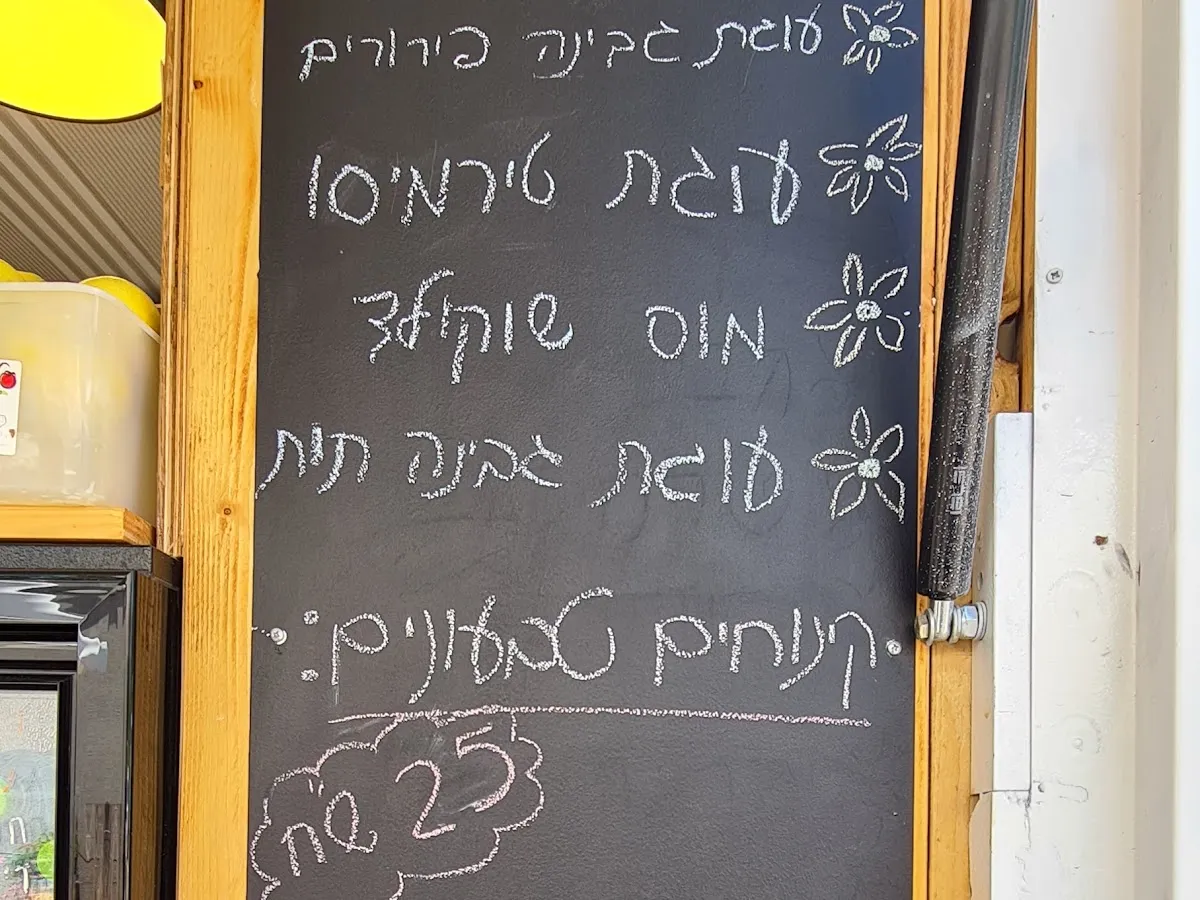 עוגת גבינה פירורים
עוגת טירמיסו
מוס שוקולד
עוגת גבינה תות
קינוחים טבעונים:
25 שח